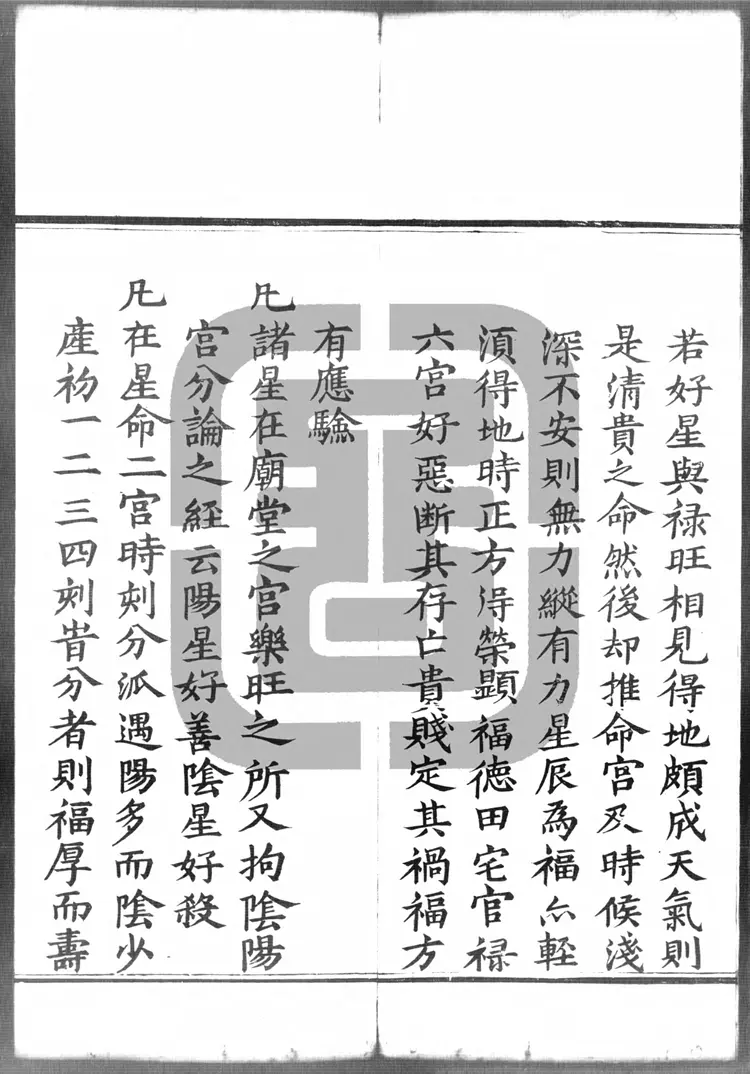 若好星與禄旺相見得地頗成天氣則
是清貴之命然後却推命宫及時候淺
深不安則無力縱有力星辰為福亦輕
湏得地時正方得榮顕福德田宅官禄
六宫好惡断其存亡貴賤定其禍福方
有應驗
凡諸星在廟堂之宫樂旺之所又拘陰陽
宫分論之經云陽星好善陰星好殺
凡在星命二宫時刻分派遇陽多而陰少
産初一二三四刻昔分者則福厚而壽